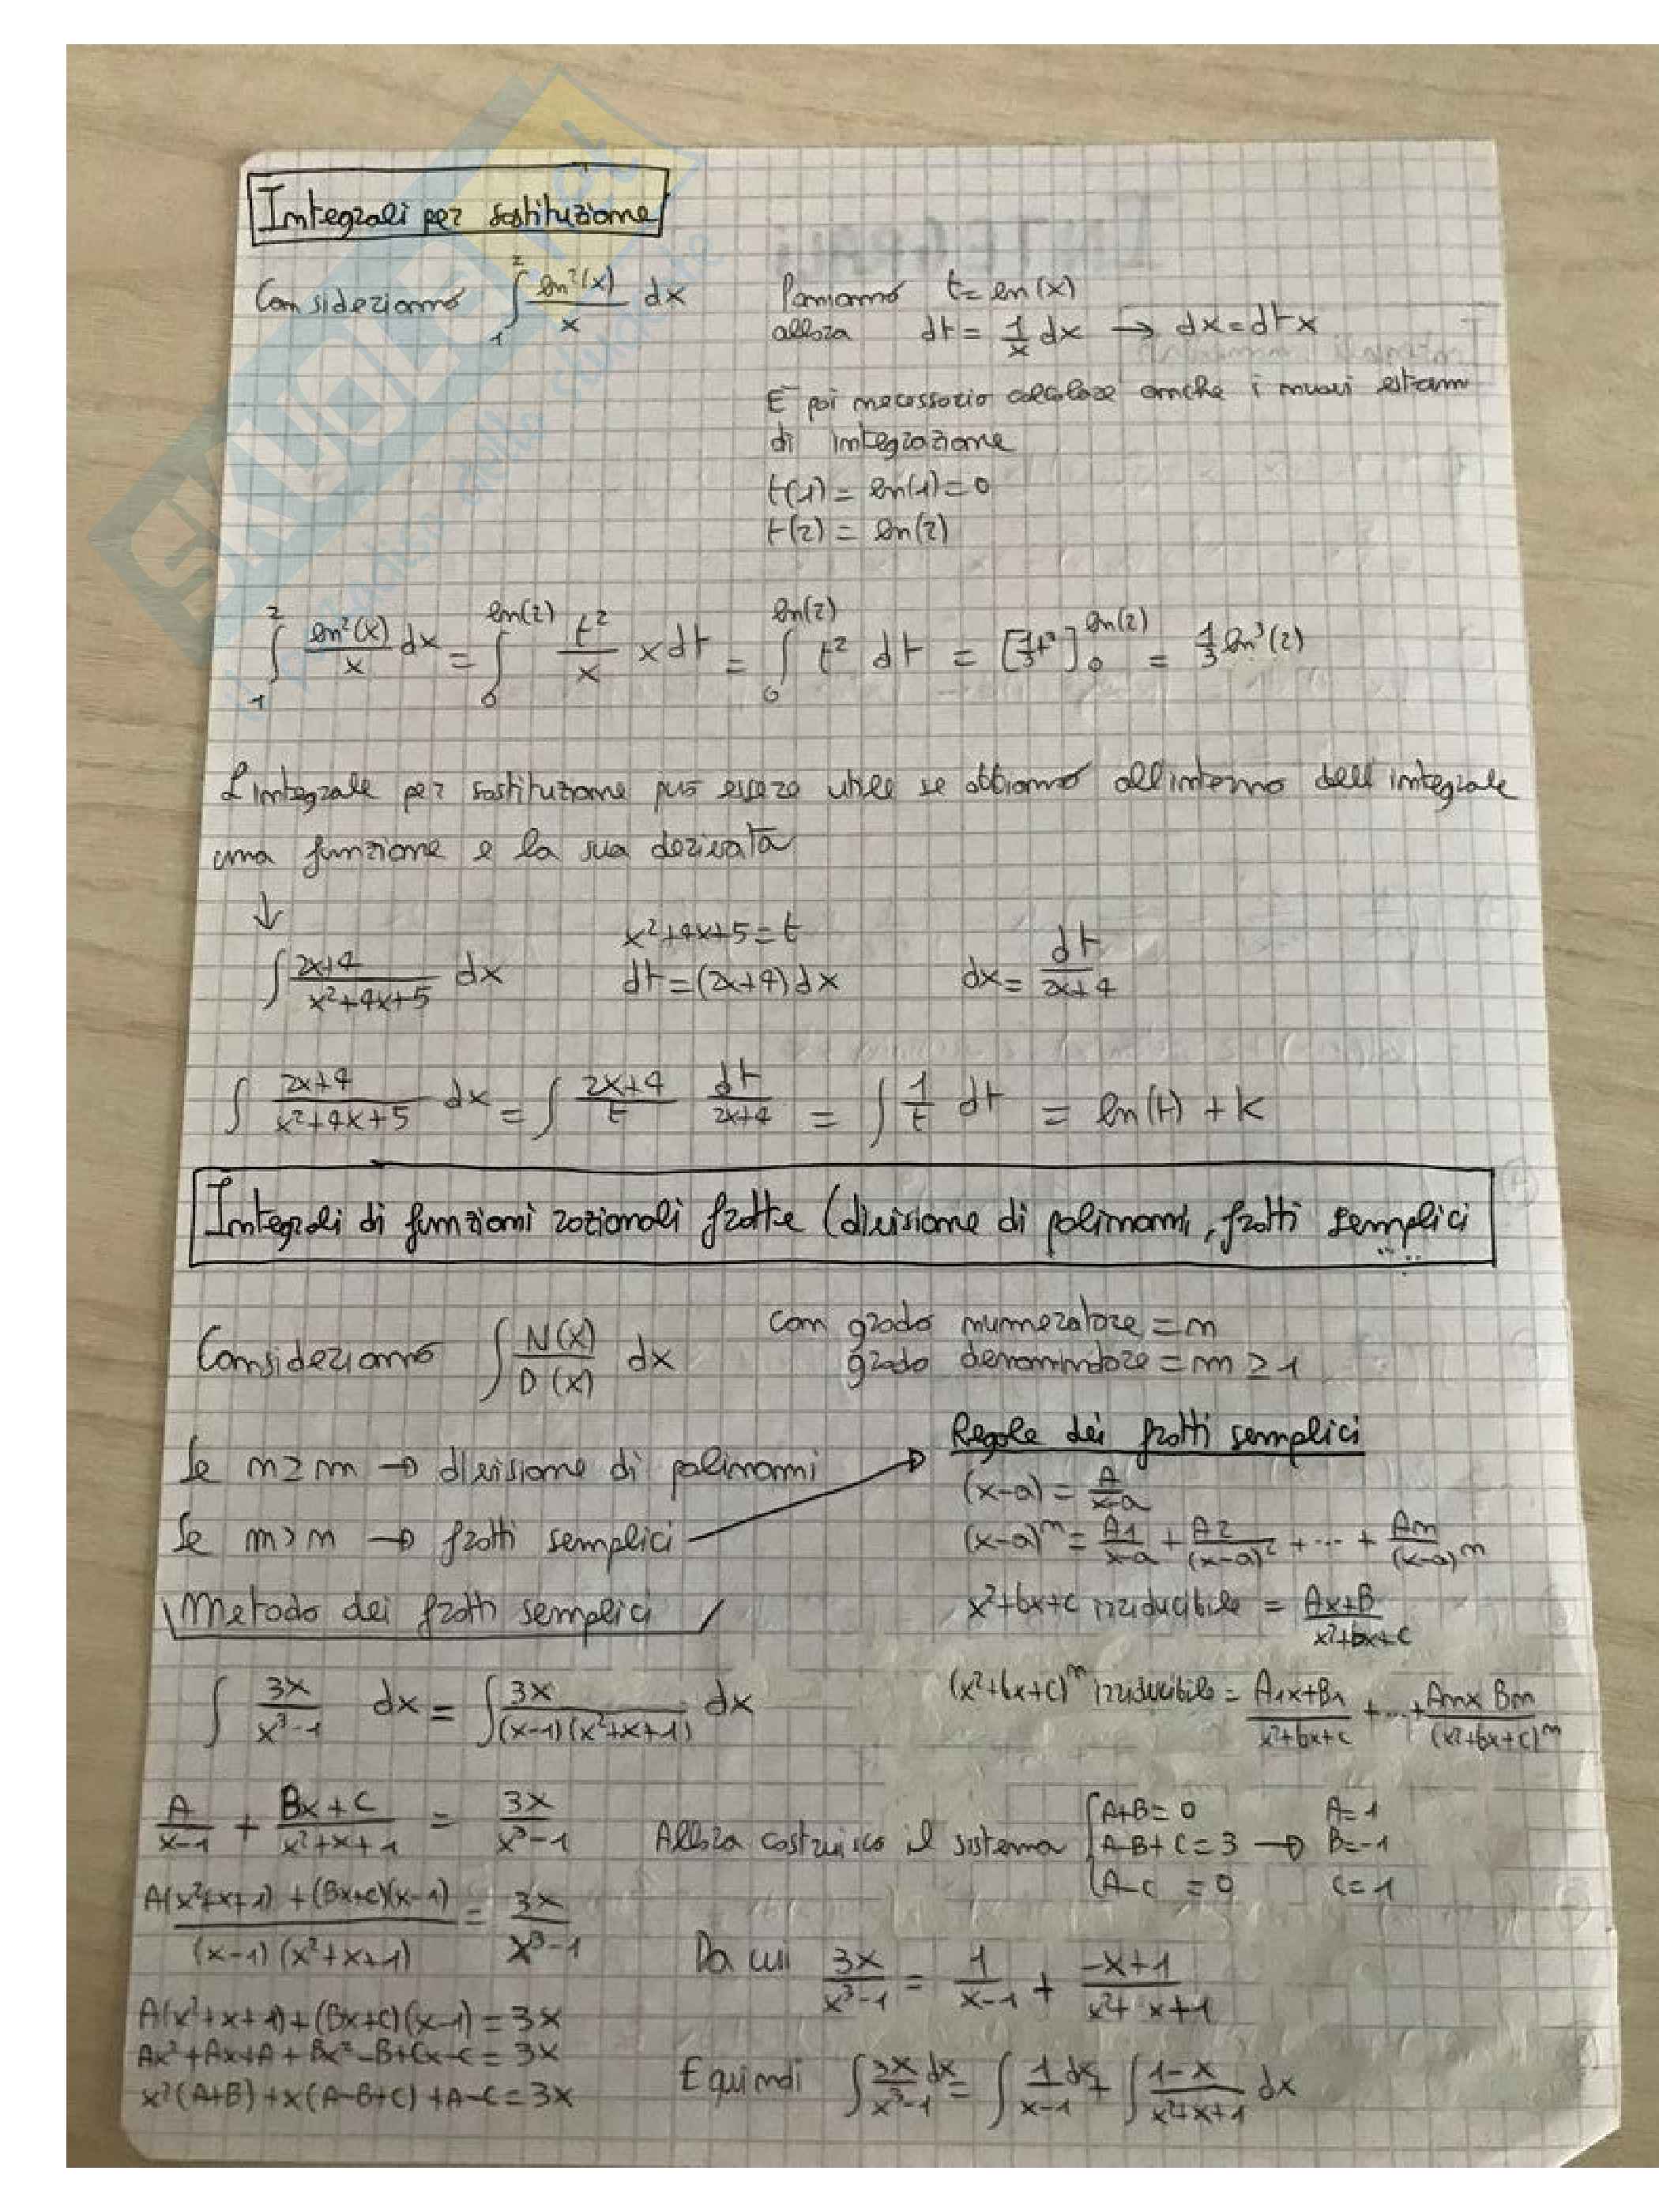 SKUOLA.net
il paradiso dello studente
Integrali per sostituzione
Consideriamo ∫₁² ln²(x)/x dx
Poniamo t = ln(x)
allora dt = 1/x dx → dx = dt x
E poi necessario calcolare anche i nuovi estremi
di integrazione
t(1) = ln(1) = 0
t(2) = ln(2)
∫₁² ln²(x)/x dx = ∫₀^ln(2) t²/x x dt = ∫₀^ln(2) t² dt = [1/3 t³]₀^ln(2) = 1/3 ln³(2)
L'integrale per sostituzione può essere utile se abbiamo all'interno dell'integrale
una funzione e la sua derivata
↓
∫ (2x+4)/(x²+4x+5) dx
x²+4x+5 = t
dt = (2x+4)dx
dx = dt/(2x+4)
∫ (2x+4)/(x²+4x+5) dx = ∫ (2x+4)/t dt/(2x+4) = ∫ 1/t dt = ln(t) + k
Integrali di funzioni razionali fratte (divisione di polinomi, fratti semplici
Consideriamo ∫ N(x)/D(x) dx
con grado numeratore = n
grado denominatore = m ≥ 1
Se n ≥ m → divisione di polinomi
Se m > n → fratti semplici
Regole dei fratti semplici
(x-a) = A/(x-a)
(x-a)ⁿ = A1/(x-a) + A2/(x-a)² + ... + An/(x-a)ⁿ
x²+bx+c irriducibile = (Ax+B)/(x²+bx+c)
(x²+bx+c)ⁿ irriducibile = (A1x+B1)/(x²+bx+c) + ... + (Anx Bn)/(x²+bx+c)ⁿ
Metodo dei fratti semplici
∫ 3x/(x³-1) dx = ∫ 3x/((x-1)(x²+x+1)) dx
A/(x-1) + (Bx+C)/(x²+x+1) = 3x/(x³-1)
(A(x²+x+1) + (Bx+c)(x-1))/((x-1)(x²+x+1)) = 3x/(x³-1)
A(x²+x+1)+(Bx+C)(x-1) = 3x
Ax²+Ax+A+Bx²-B+Cx-c = 3x
x²(A+B)+x(A-B+C)+A-C = 3x
Allora costruisco il sistema
{A+B = 0
A-B+C = 3 →
A-C = 0
A = 1
B = -1
C = 1
Da cui 3x/(x³-1) = 1/(x-1) + (-x+1)/(x²+x+1)
E quindi ∫ 3x/(x³-1) dx = ∫ 1/(x-1) dx + ∫ (1-x)/(x²+x+1) dx